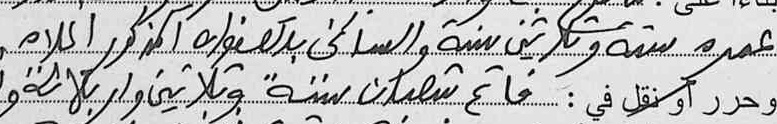 عمره ستة وثلاثين سنة والساكن بالعنوان المذكور أعلاه
وحرر أو نقل في : فاتح شعبان سنة وثلاثين وأربعمائة و